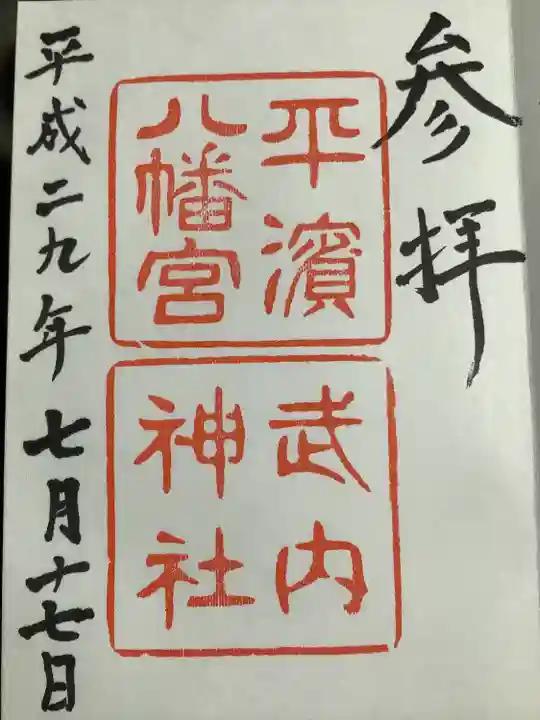 参拝
平濱
八幡宮
武内
神社
平成二九年七月十七日